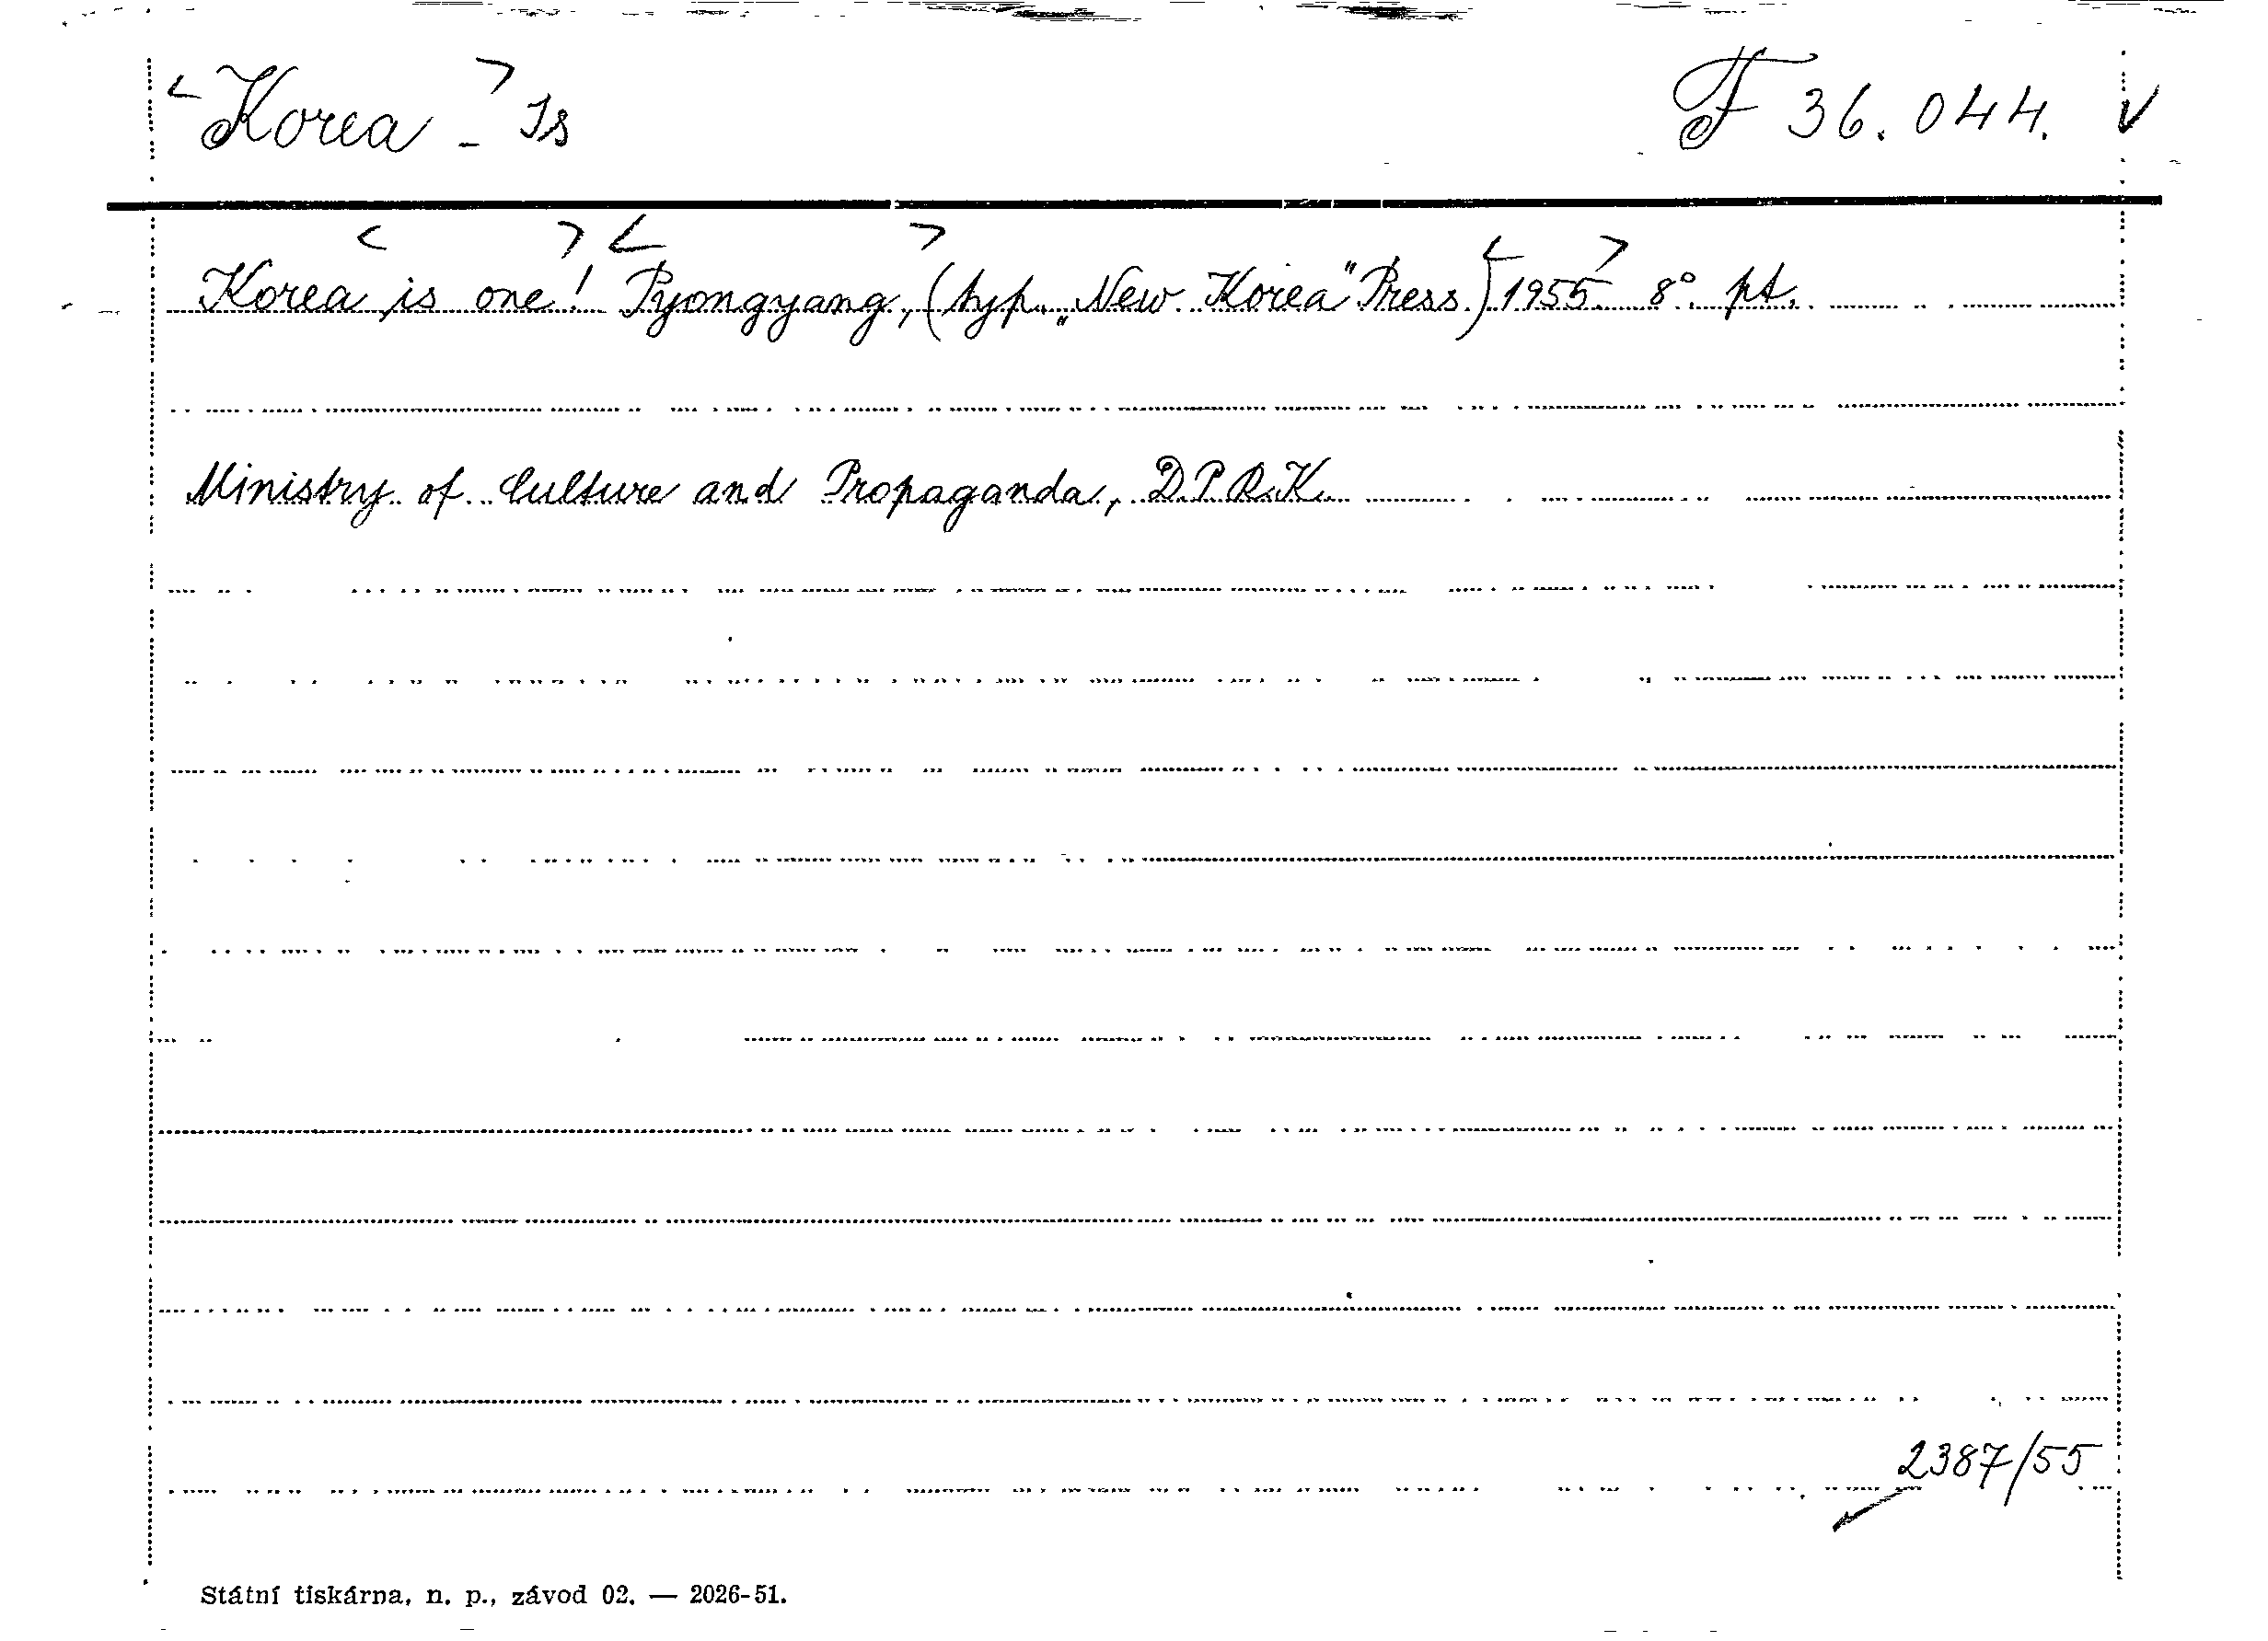 <Korea - > Is F 36.044. v
Korea <is one!> <Pyongyang>, (typ. „New Korea" Press) <1955.> 8°. pt.
Ministry of Culture and Propaganda, D.P.R.K.
2387/55
Státní tiskárna, n. p., závod 02. — 2026-51.